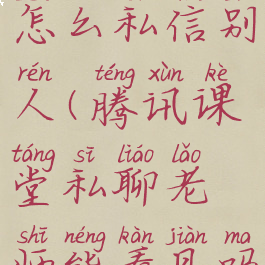 怎么私信别
rén téng xùn kè
人(腾讯课
táng sī liáo lǎo
堂私聊老
shī néng kàn jiàn ma
师能看见吗